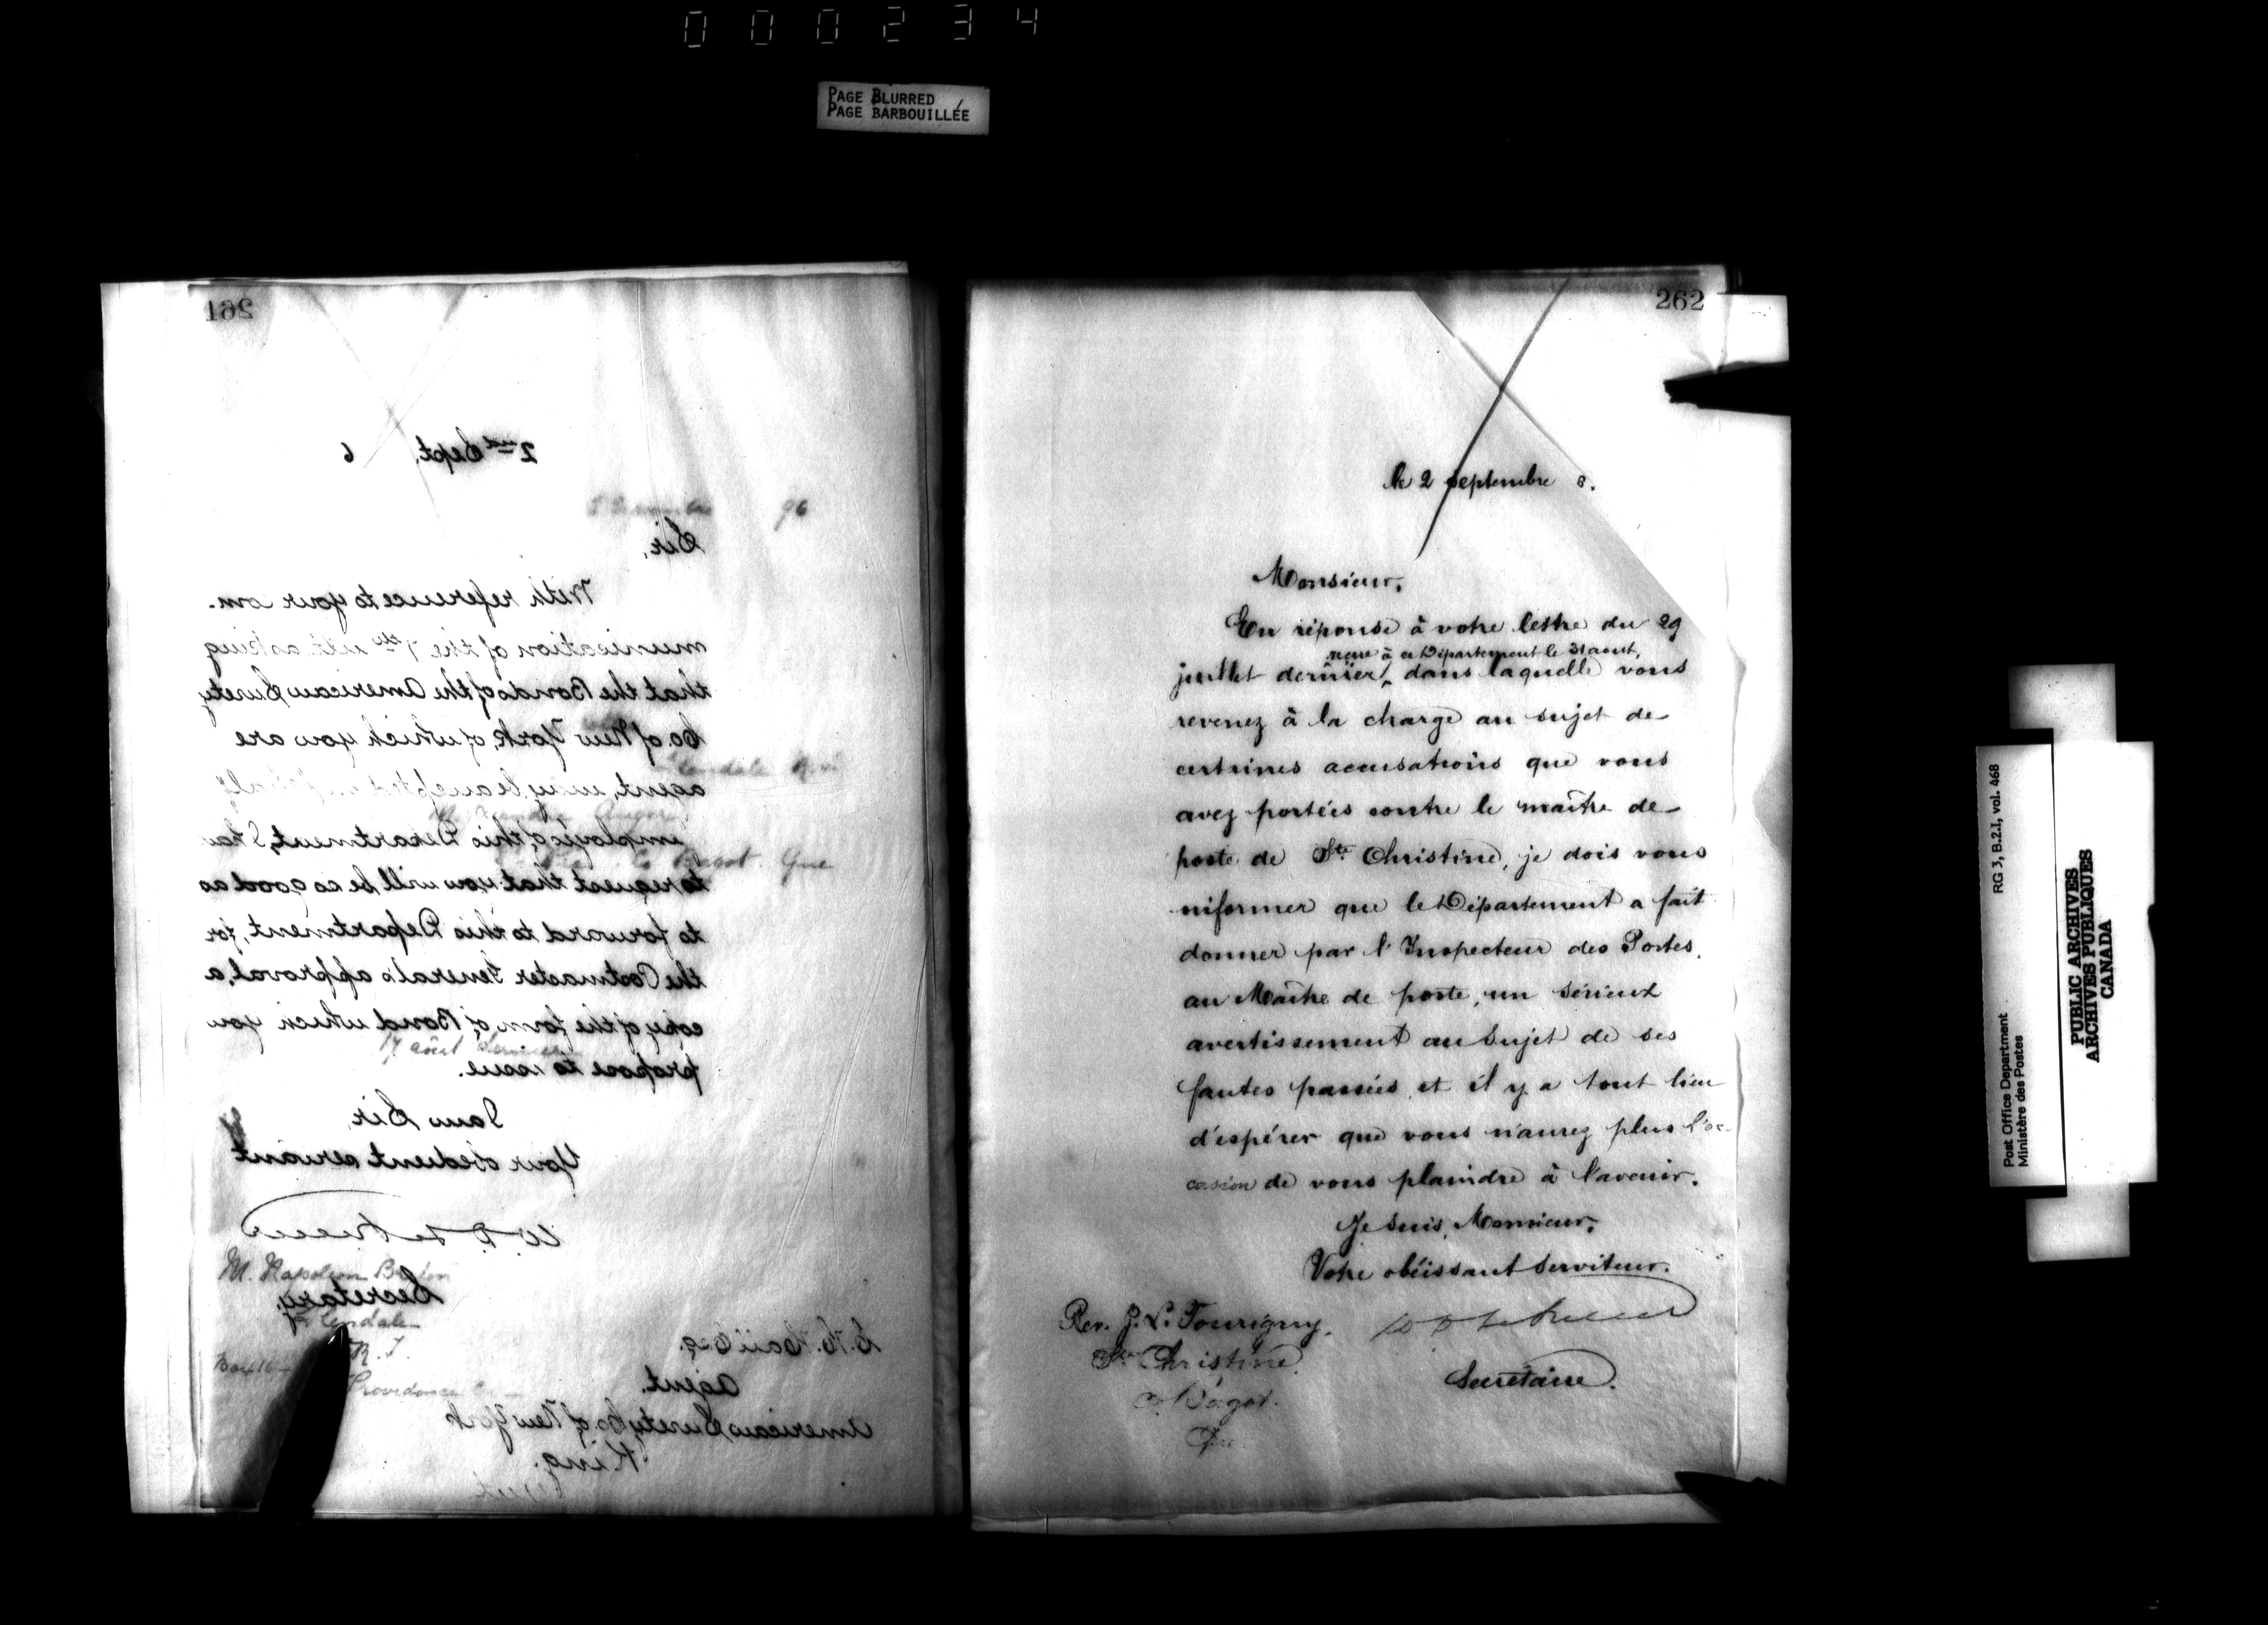 000234
PAGE BLURRED
PAGE BARBOUILLÉE
261
2nd Sept. 6
96
Sir,
With reference to your com-
munication of the 7th ult. asking
that the Bonds of the American Surety
Co. of New York, of which you are
agent, may be accepted
employés of this Department, I have
to request that you will be so good as
to forward to this Department, for
the Postmaster General's approval, a
copy of the form of Bond which you
propose to issue.
I am Sir,
Your obedient servant
Secretary.
Agent.
American Surety Co. of New York
King.
Glendale R.I.
Bagot Que
17 août dernier
M. Napoleon
Glendale
R.I.
Box 16
Providence
262
le 2 septembre 6.
Monsieur,
En réponse à votre lettre du 29
reçue à ce Département le 31 aout,
juillet dernier, dans laquelle vous
revenez à la charge au sujet de
certaines accusations que vous
avez portées contre le maître de
poste de Ste Christine, je dois vous
informer que le Département a fait
donner par l'Inspecteur des Postes,
au Maître de poste, un sérieux
avertissement au sujet de ses
fautes passées, et il y a tout lieu
d'espérer que vous n'aurez plus l'oc-
casion de vous plaindre à l'avenir.
Je suis, Monsieur,
Votre obéissant serviteur.
Rev. J. L. Tourigny,
Ste Christine
Co. Bagot.
Que
Secrétaire.
Post Office Department RG 3, B.2.1, vol. 468
Ministère des Postes
PUBLIC ARCHIVES
ARCHIVES PUBLIQUES
CANADA